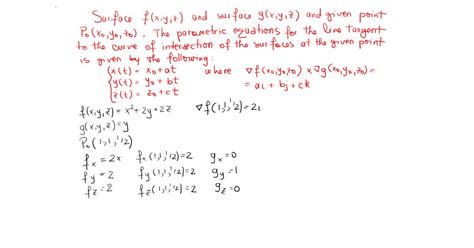 Surface f(x,y,z) and surface g(x,y,z) and given point
P₀(x₀,y₀,z₀). The parametric equations for the line tangent
to the curve of intersection of the surfaces at the given point
is given by the following:
{x(t) = x₀+at where ∇f(x₀,y₀,z₀) × ∇g(x₀,y₀,z₀) =
{y(t) = y₀+bt = ai + bj + ck
{z(t) = z₀+ct
f(x,y,z) = x²+2y+2z ∇f(1,1,1/2)=2i
g(x,y,z)=y
P₀(1,1,1/2)
fx = 2x fx(1,1,1/2)=2 gx=0
fy = 2 fy(1,1,1/2)=2 gy=1
fz=2 fz(1,1,1/2)=2 gz=0